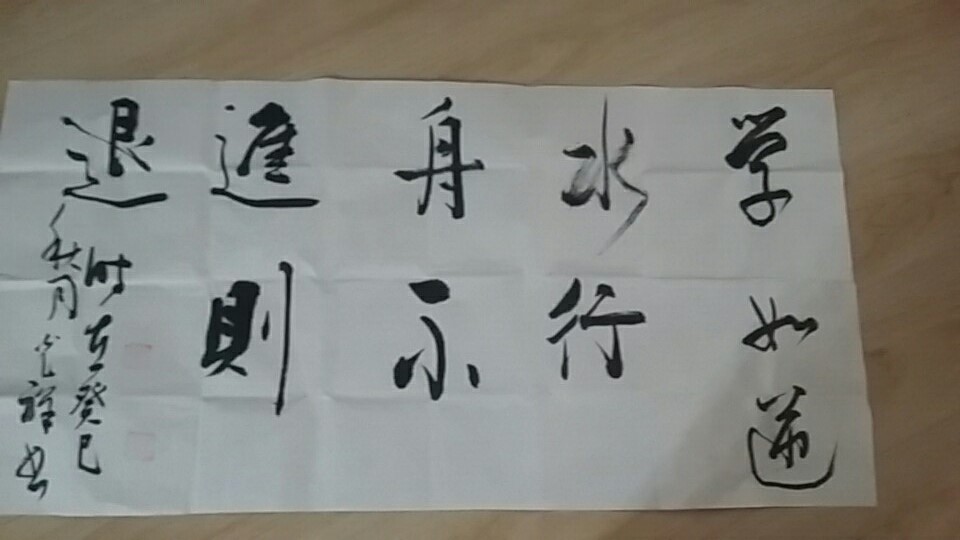 学如逆
水行
舟不
進則
退
时在癸巳
秋月 祥书